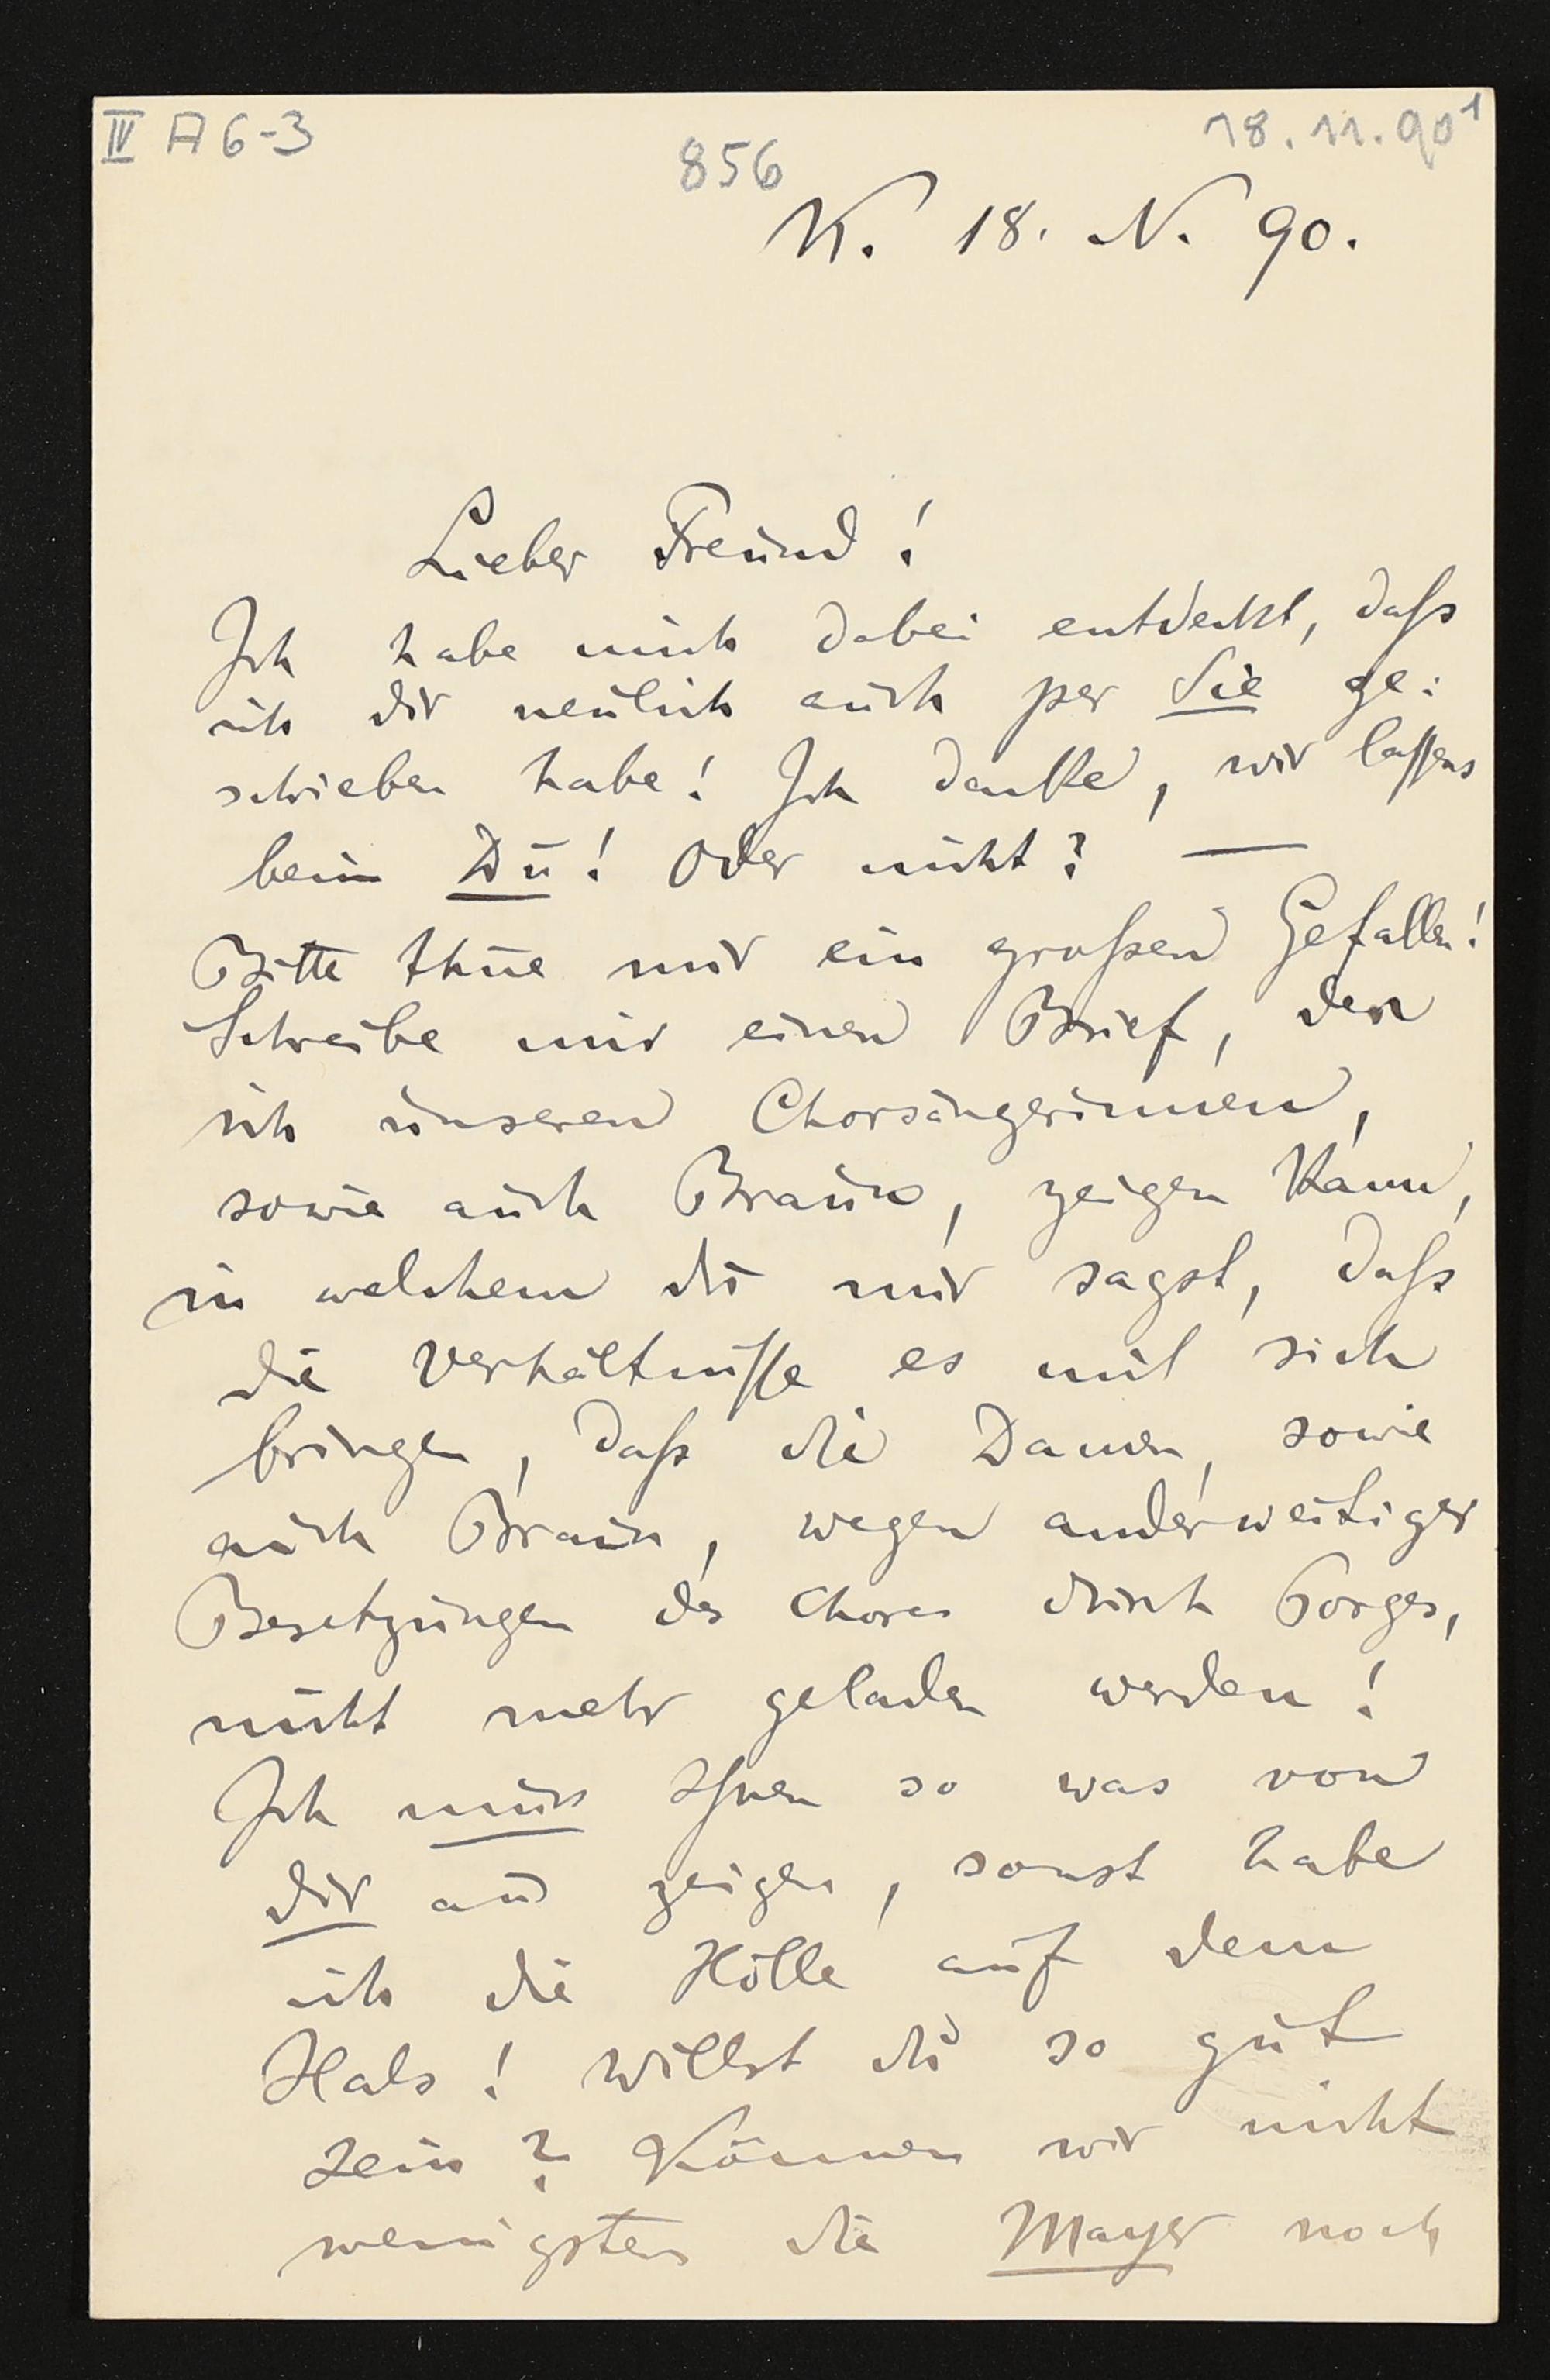 IV A 6-3
18.11.90 1
856
K. 18. N. 90.
Lieber Freund!
Ich habe mich dabei entdeckt, daß
ich dir neulich auch per Sie ge:
schrieben habe! Ich denke, wir lassens
beim Du! Oder nicht? —
Bitte thue mir ein großen Gefallen!
Schreibe mir einen Brief, den
ich unseren Chorsängerinnen,
sowie auch Braun, zeigen kann,
in welchem du mir sagst, daß
die Verhältnisse es mit sich
bringen, daß die Damen, sowie
auch Braun, wegen anderweitiger
Besetzungen des Chores durch Porges,
nicht mehr geladen werden!
Ich muss Ihnen so was von
dir aus zeigen, sonst habe
ich die Hölle auf dem
Hals! Willst du so gut
sein? Können wir nicht
wenigstens die Mayer noch